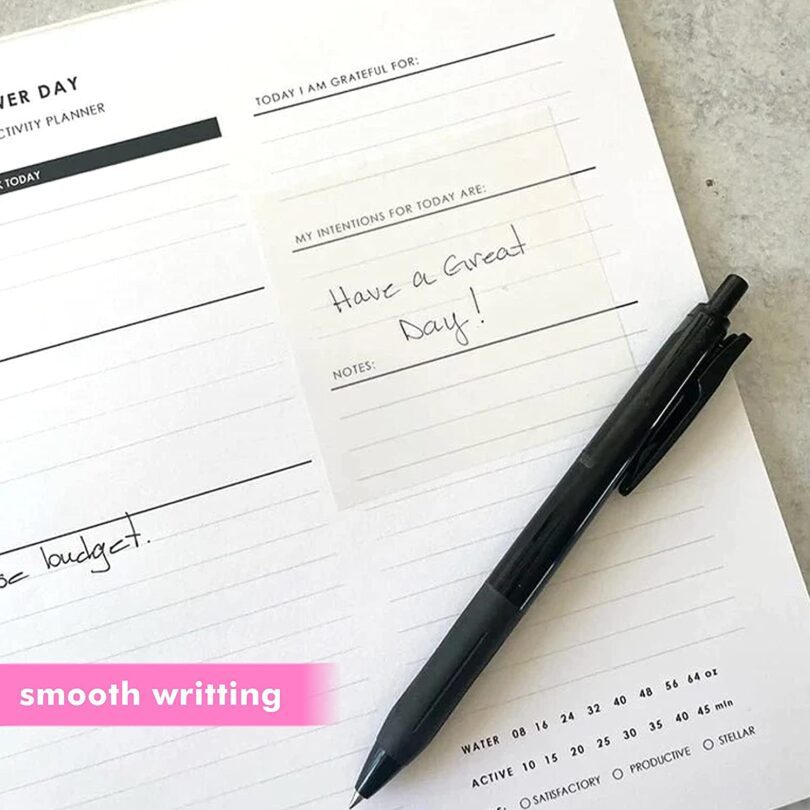 VER DAY
CTIVITY PLANNER
TODAY
TODAY I AM GRATEFUL FOR:
MY INTENTIONS FOR TODAY ARE:
Have a Great
Day!
NOTES:
budget.
smooth writting
WATER 08 16 24 32 40 48 56 64 oz
ACTIVE 10 15 20 25 30 35 40 45 min
SATISFACTORY PRODUCTIVE STELLAR